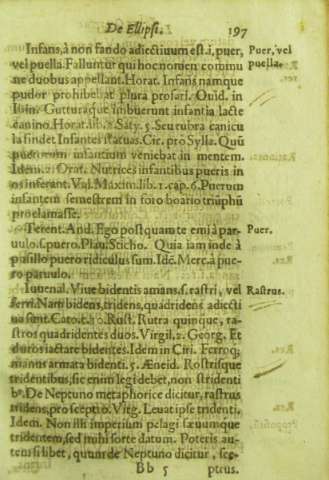 De Ellipsi. 197
Infans, à non fando adiectiuum est .i. puer, Puer, vel
vel puella. Falluntur qui hoc nomen commu puella.
ne duobus appellant. Horat. Infans namque
pudor prohibebat plura profari. Ouid. in
Ibin. Gutturaque imbuerunt infantia lacte
canino. Horat. lib. 2. Saty. 5. Seu rubra canicu
la findet Infantes statuas. Cic. pro Sylla. Quũ
puerorum infantium veniebat in mentem.
Idem. 2. Orat. Nutrices infantibus pueris in
os inserant. Val. Maxim. lib. 1. cap. 6. Puerum
infantem semestrem in foro boario triũphũ
proclamasse.
Terent. And. Ego postquam te emi à par Puer.
uulo. s. puero. Plau. Sticho. Quia iam inde à
pusillo puero ridiculus sum. Idẽ. Merc. à pue
ro paruulo.
Iuuenal. Viue bidentis amans. s. rastri, vel Rastrus.
ferri. Nam bidens, tridens, quadridens adiecti
ua sunt. Cato. c. 10. Rust. Rutra quinque, ra-
stros quadridentes duos. Virgil. 2. Georg. Et
duros iactare bidentes. Idem in Ciri. Ferroq;
manus armata bidenti. 5. Æneid. Rostrisque
tridentibus, sic enim legi debet, non stridenti
bꝰ. De Neptuno metaphorice dicitur, rastrus
tridens, pro sceptro. Virg. Leuat ipse tridenti.
Idem. Non illi imperium pelagi sæuumque
tridentem, sed mihi sorte datum. Poteris au-
tem si libet, quum de Neptuno dicitur, sce-
Bb 5 ptrus.